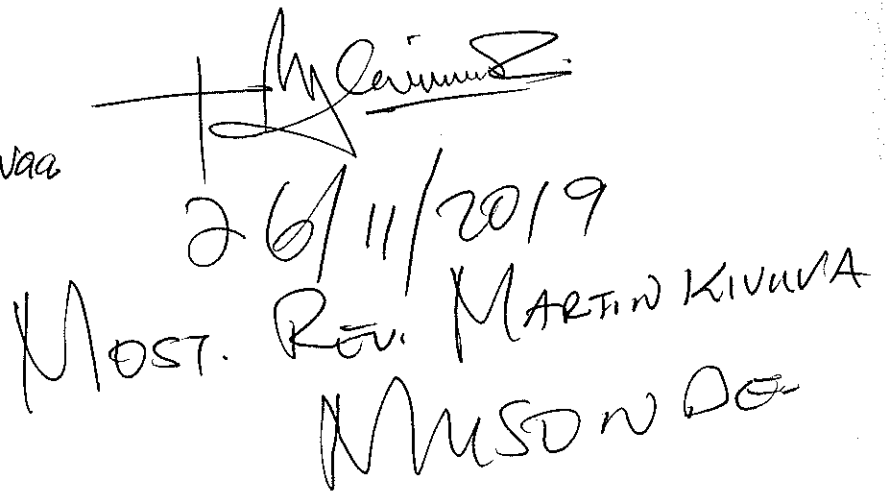 26/11/2019
MOST. REV. MARTIN KIVUVA
MUSONDE